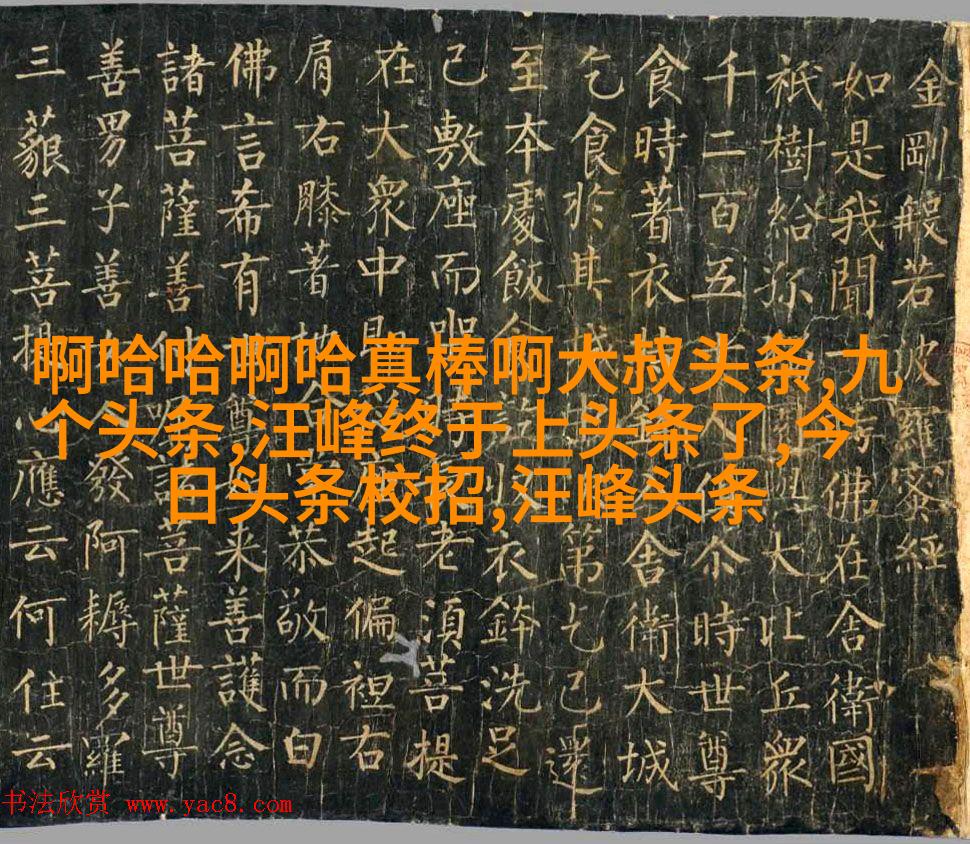 金剛般若波羅蜜經
如是我聞一時佛在舍衛國
祇樹給孤園大比丘眾
千二百五人俱尒時世尊
食時著衣持舍衛大城
乞食於其城第乞已還
至本處飯食訖収衣鉢洗足
已敷座而坐老須菩提
在大眾中即起偏袒右
肩右膝著地恭敬而白
佛言希有世尊来善護念
諸菩薩善付囑諸菩薩世尊
善男子善女人發阿耨多羅
三藐三菩提心應云何住云
啊哈哈啊哈真棒啊大叔头条,九
个头条,汪峰终于上头条了,今
日头条校招,汪峰头条
书法欣赏 www.yac8.com